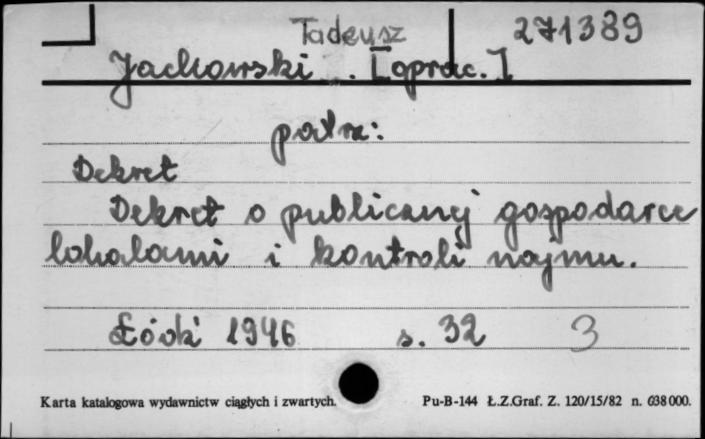 Tadeusz 271389
Jackowski . [oprac.]
patrz:
Dekret
Dekret o publicznej gospodarce
lokalami i kontroli najmu.
Łódź 1946 s. 32 3
Karta katalogowa wydawnictw ciągłych i zwartych. Pu-B-144 Ł.Z.Graf. Z. 120/15/82 n. 638 000.